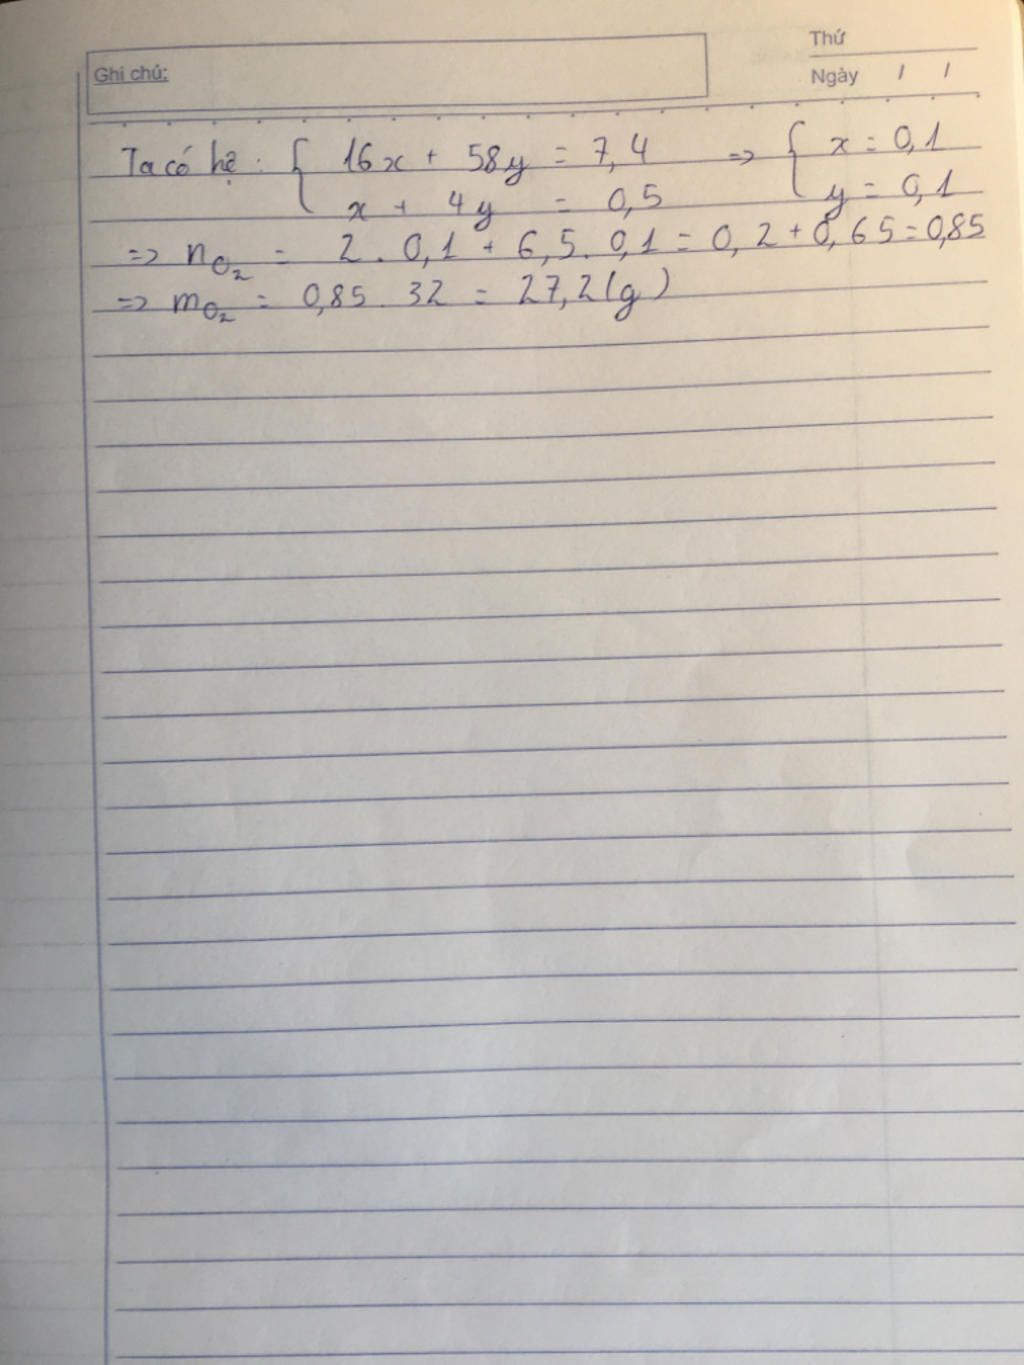 Thứ
Ghi chú:
Ngày / /
Ta có hệ: { 16x + 58y = 7,4 => { x = 0,1
x + 4y = 0,5 y = 0,1
=> nO₂ = 2 . 0,1 + 6,5 . 0,1 = 0,2 + 0,65 = 0,85
=> mO₂ = 0,85 . 32 = 27,2 (g)